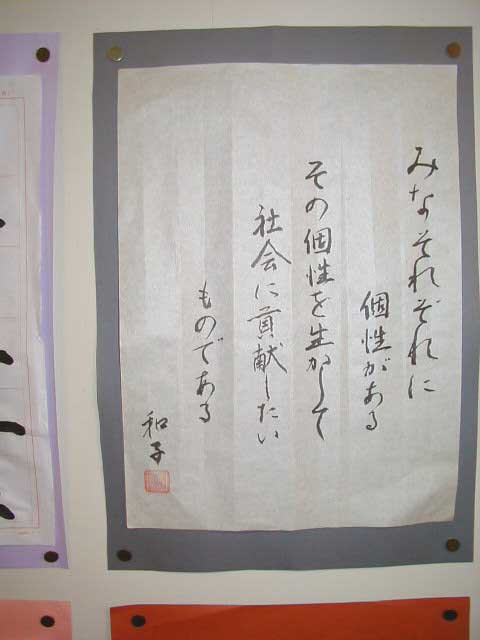 みなそれぞれに
個性がある
その個性を生かして
社会に貢献したい
ものである
和子